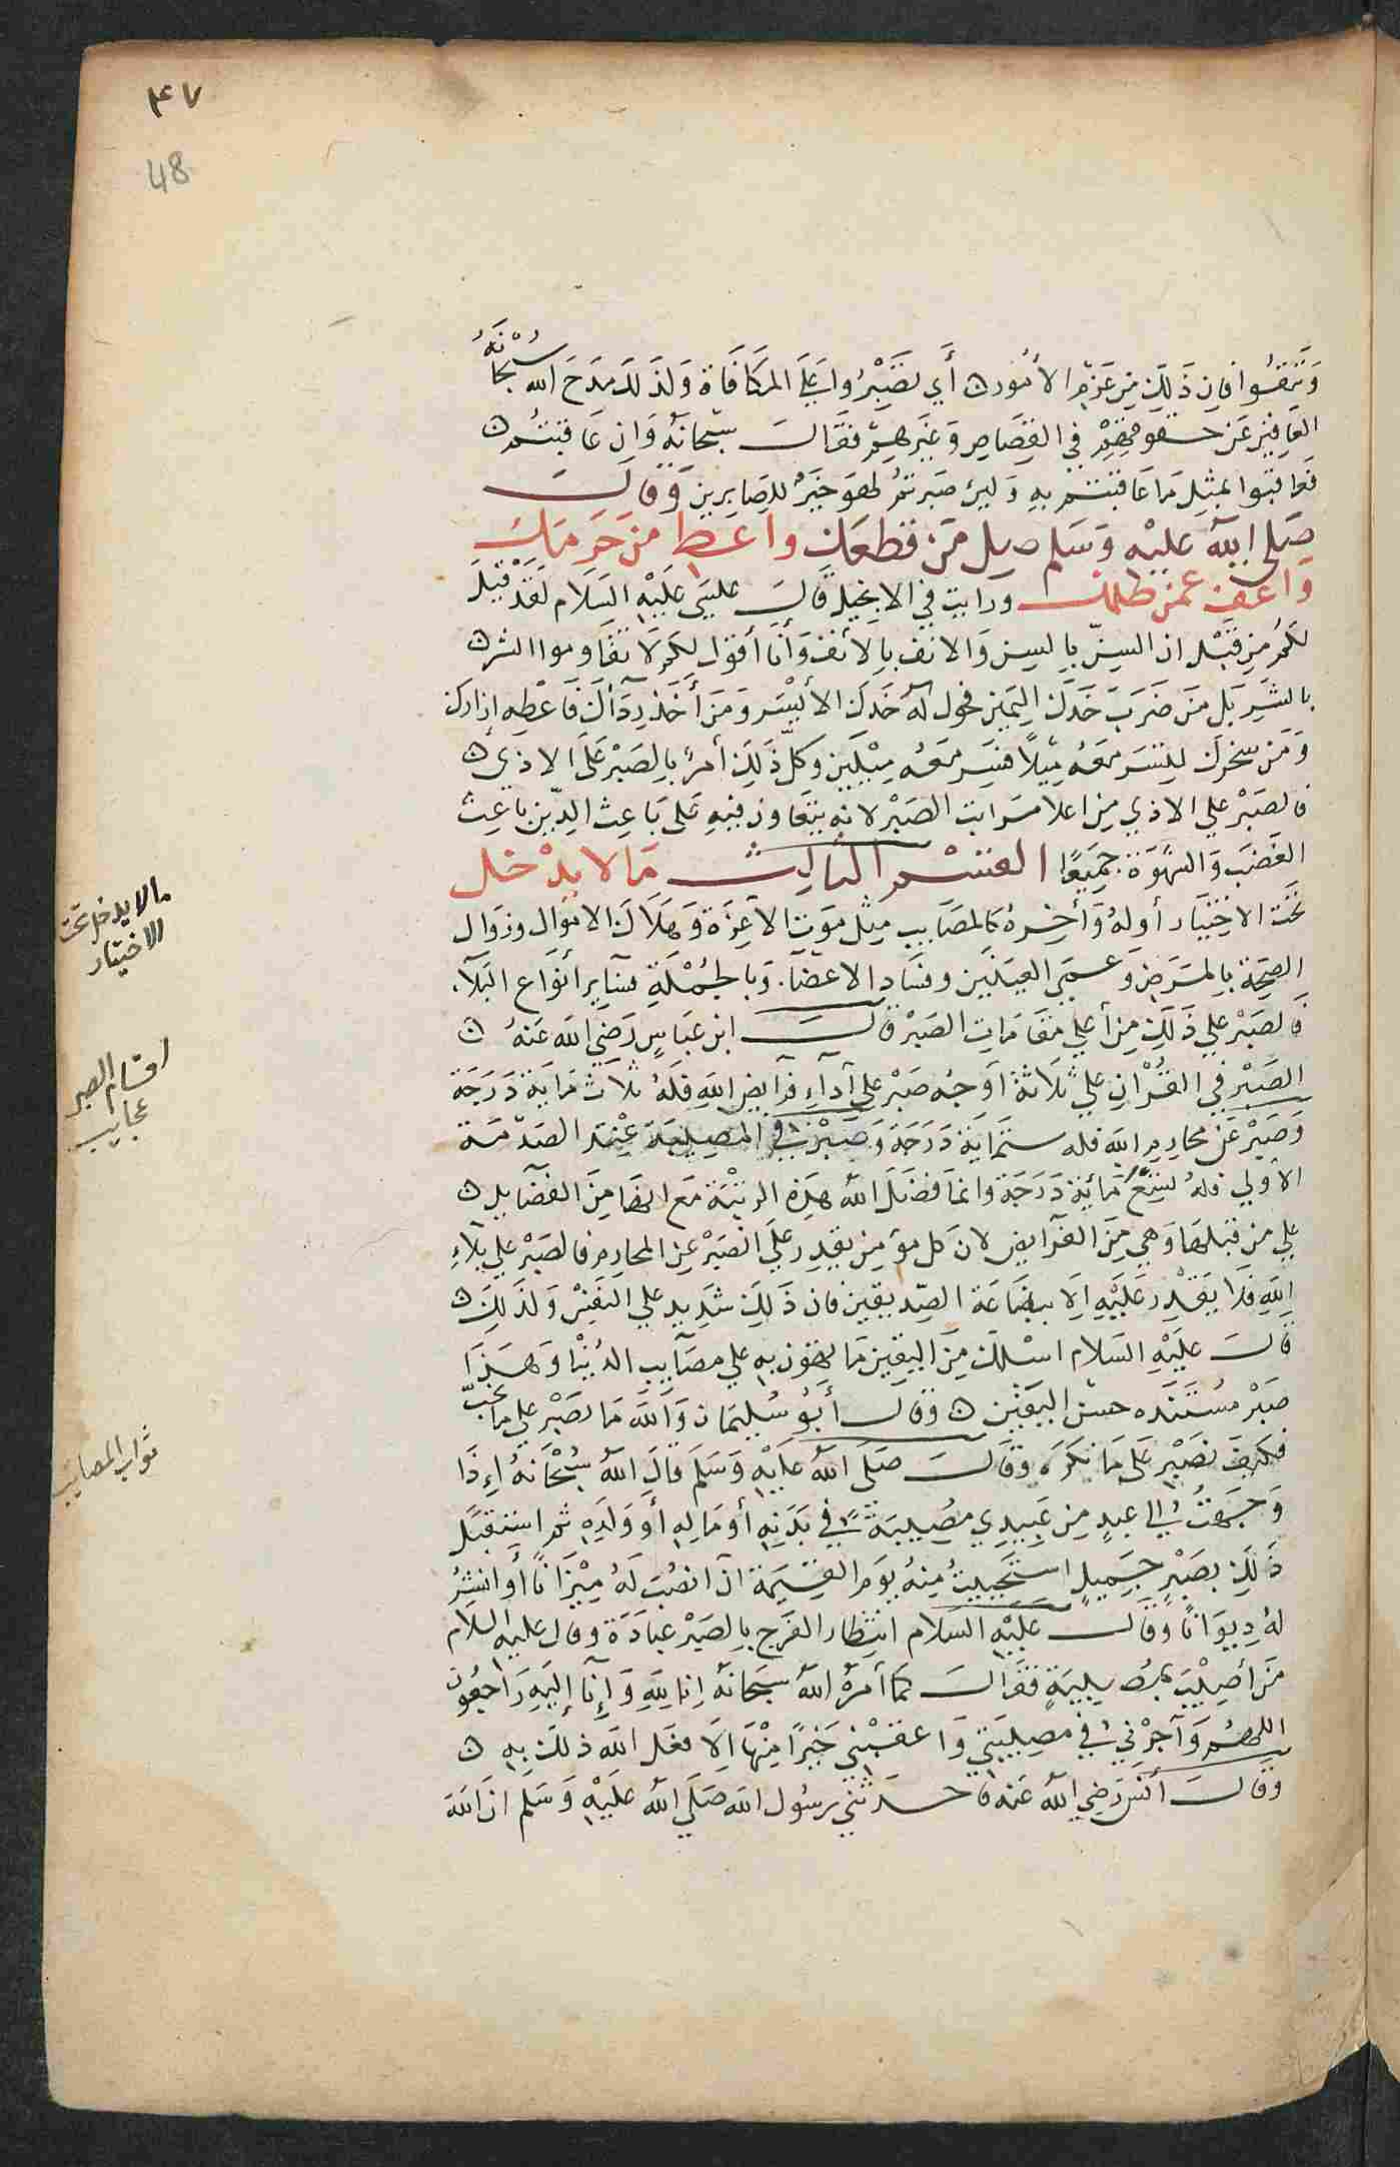 ٤٧
48
وَتَتَّقُوا فَإِن ذَلِكَ مِن عَزْمِ الأُمُورِ أَي تَصْبِرُوا عَلَى المكَافَاة وَلِذَلِكَ مَدَحَ الله سُبْحَانَهُ
العافِينَ عَن حقوقهِمْ في القصَاصِ وَغَيرهِ فَقَالَ سبحَانَهُ وَإِن عَاقبتُمْ
فَعَاقبُوا بمثلِ مَا عَاقبتُم بِهِ وَلئن صَبرتُمْ لهوَ خَيرٌ للصَابِرين وَقَالَ
صَلى اللهُ عَليْهِ وَسَلم صِل مَن قطعَك وأعط من حَرمَك
وَاعفُ عمن ظلمك ورايت في الانجيل قَالَ عليسَى عَليْهِ السَلَام لَقَدْ قيلَ
لَكُمْ مِن قَبْل ان السِنّ بِالسِن وَالانف بِالأنف وَأنَا أقول لَكُمْ لَا تقَاوِموا الشر
بالشَرِ بَل مَن ضَرَبَ خَدَكَ اليَمِين فحول لَهُ خَدَك الأَيْسَر وَمَن أَخَذَ رِدَآءَكَ فَاعْطِهِ ازارك
وَمَن سخرَك لِتسَر مَعَهُ مِيلًا فسِر مَعَهُ مِيْلَين وَكلّ ذَلِكَ أَمرٌ بِالصَبْر عَلَى الاذي
فالصَبْر علي الاذي مِن اعلا مرَاتب الصَبْر لانه يتعَاون فيهِ عَلى بَاعِث الدّين باعِث
الغضَب وَالشهوَة جَمِيعًا القسْم الثالِث مَا لا يدْخل
تحْتَ الاختيَار أولهُ وَأخِرهُ كالمصَايب مِثْل مَوَت الأعِزَة وَهَلَاكَ الاموَال وزوَال
الصِحَة بِالمرَض وَعمَى العَينَين وفسَاد الاعضَآءِ وَبِالجُمْلَةِ سَآيِر أنوَاع البَلَآءِ
فَالصَبْر علي ذَلِكَ مِن أعلي مَقَامَات الصَبْر قَالَ ابن عَبَاسٍ رَضي الله عَنهُ
الصَبْر في القُرْانِ علي ثلَاثَة أوَجُه صَبْر علي آدَآءِ فرآيض الله فلَهُ ثلَاث مَايَة دَرَجَة
وَصَبْر عَن محَارِم الله فله ستمَايَة دَرَجَة وَصَبْرٌ في المصِيبَة عِنْدَ الصَدْمَة
الأولي فلهُ تسْعُ مَائَة دَرَجَة وانمَا فضَلَ اللهُ هَذِه الرتبَة مَع انهَا مِنَ الفضَآيل
علي مَن قبلهَا وَهيَ مِنَ الفرَآيض لان كل مؤمِن يقدِر عَلَى الصَبْر عَن المحَارِم فالصَبْر علي بلَاءِ
اللهِ فلَا يَقْدِر عَلَيْهِ إلَا ببضَاعَة الصِديقين فان ذَلِكَ شدِيد علي النفسْ وَلِذَلِكَ
قَالَ عليْهِ السَلَام اسئلك مِنَ اليَقِين مَا تهون بِهِ علي مصَآيِب الدُنْيَا وَهَذَا
صَبْر مُستَنَده حسْن اليَقين وقَالَ أَبُو سُليمَان وَالله مَا نصْبر علي مَا نحبّ
فكيفَ نصْبر عَلَى مَا نَكرَه وَقَالَ صَلَى اللهُ عَليْهِ وَسَلم قَالَ اللهُ سُبْحَانَهُ إِذَا
وَجَهَتُ إلي عبدٍ مِن عَبِيدِي مصِيبَةً في بَدَنِهِ أو مَالِهِ أو وَلَدِهِ ثمَ استقبَل
ذَلِكَ بصَبْرٍ جَمِيلٍ استَحيَيتُ مِنهُ يوَم القيمَة ان انصُبَ لَهُ مِيْزَانًا أو انشرُ
لهُ دِيوَانًا وَقَالَ عليْهِ السَلَام انتظار الفرَج بِالصَبْر عبَادَة وقال عليه السلام
مَن أُصِيْبَ بمُصِيبَةٍ فقَالَ كمَا أمرَهُ اللهُ سُبحَانَهُ إنا للهِ وَإنَآ إليَهِ رَاجعُون
اللهُمَ وَآجرْني في مصِيبَتي وَاعقبْني خَيرًا مِنْهَا إلَا فعَل الله ذلِكَ بِهِ
وَقَالَ أنَس رَضي اللهُ عَنه حدثني رسُول الله صَلَي اللهُ عَلَيْهِ وَسَلم ان اللهَ
مالا يدخل تحت
الاختيار
اقسام الصبر
عجايب
ثواب المصايب